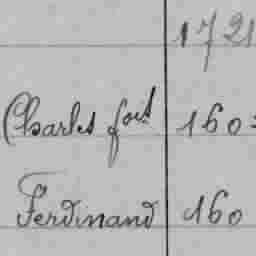 1721
Charles foid 160
Ferdinand 160